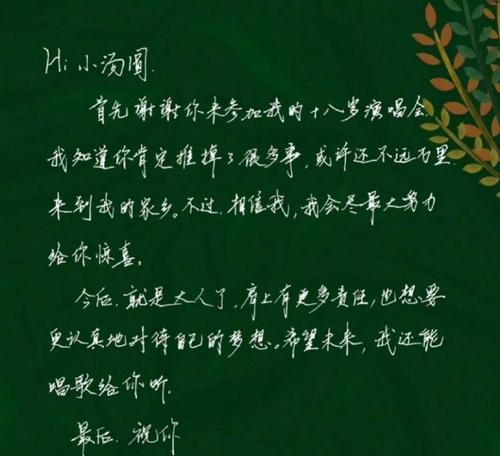 Hi 小汤圆.
首先谢谢你来参加我的十八岁演唱会.
我知道你肯定推掉了很多事,或许还不远万里
来到我的家乡。不过.相信我,我会尽最大努力
给你惊喜。
今后.就是大人了,肩上有更多责任,也想要
更认真地对待自己的梦想。希望未来,我还能
唱歌给你听.
最后.祝你